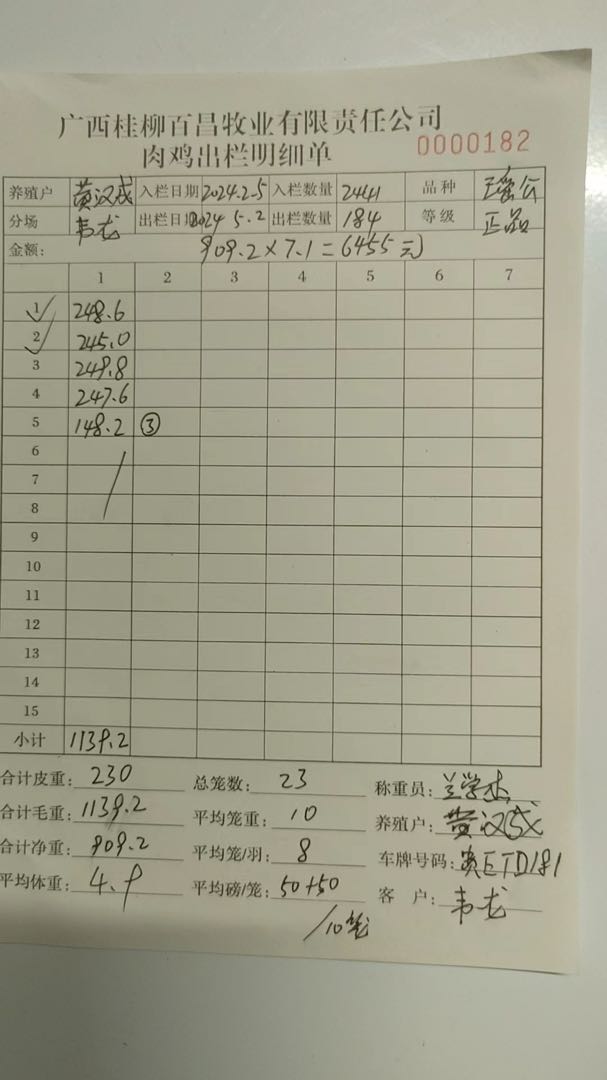 广西桂柳百昌牧业有限责任公司
肉鸡出栏明细单 0000182
养殖户 黄汉成 入栏日期 2024.2.5 入栏数量 2441 品种 瑶公
分场 韦龙 出栏日期 2024 5.2 出栏数量 184 等级 正品
金额: 909.2×7.1=6455元
1 2 3 4 5 6 7
1 248.6
2 245.0
3 249.8
4 247.6
5 148.2 ③
6
7
8
9
10
11
12
13
14
15
小计 1139.2
合计皮重: 230 总笼数: 23 称重员: 兰学杰
合计毛重: 1139.2 平均笼重: 10 养殖户: 黄汉成
合计净重: 909.2 平均笼/羽: 8 车牌号码: ETD181
平均体重: 4.9 平均磅/笼: 50+50 客户: 韦龙
/10笼